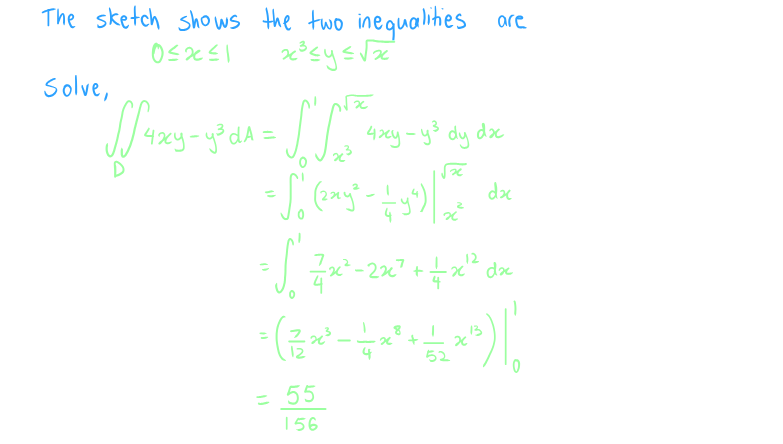 The sketch shows the two inequalities are
0 ≤ x ≤ 1    x³ ≤ y ≤ √x
Solve,
∬_D 4xy − y³ dA = ∫₀¹ ∫_{x³}^{√x} 4xy − y³ dy dx
= ∫₀¹ (2xy² − 1/4 y⁴) |_{x²}^{√x} dx
= ∫₀¹ 7/4 x² − 2x⁷ + 1/4 x¹² dx
= (7/12 x³ − 1/4 x⁸ + 1/52 x¹³) |₀¹
= 55/156